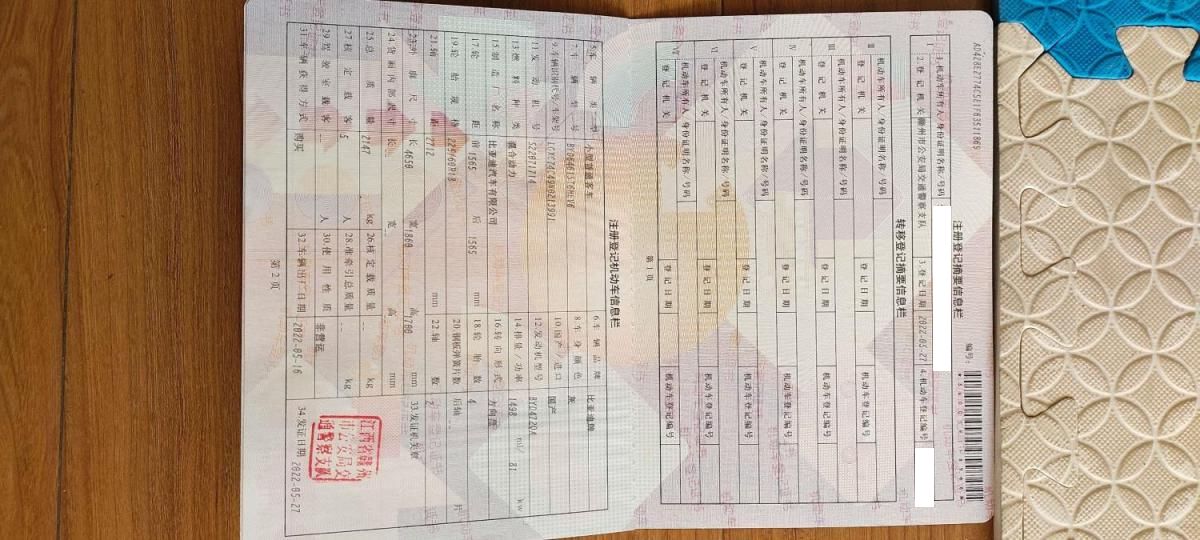 注册登记摘要信息栏
编号:
1.机动车所有人/身份证明名称/号码
2.登记机关 赣州市公安局交通警察支队 3.登记日期 2022-05-27 4.机动车登记编号
转移登记摘要信息栏
II 机动车所有人/身份证明名称/号码
登记机关 登记日期 机动车登记编号
III 机动车所有人/身份证明名称/号码
登记机关 登记日期 机动车登记编号
IV 机动车所有人/身份证明名称/号码
登记机关 登记日期 机动车登记编号
V 机动车所有人/身份证明名称/号码
登记机关 登记日期 机动车登记编号
VI 机动车所有人/身份证明名称/号码
登记机关 登记日期 机动车登记编号
VII 机动车所有人/身份证明名称/号码
登记机关 登记日期 机动车登记编号
第1页
注册登记机动车信息栏
5.车辆类型 小型普通客车 6.车辆品牌 比亚迪牌
7.车辆型号 8.车身颜色
9.车辆识别代号/车架号 10.国产/进口 国产
11.发动机号 12.发动机型号
13.燃料种类 混合动力 14.排量/功率 1498 ml/ 81 kw
15.制造厂名称 比亚迪汽车有限公司 16.转向形式 方向盘
17.轮距 前 1565 后 1565 mm 18.轮胎数 4
19.轮胎规格 20.钢板弹簧片数 后轴 -- 片
21.轴距 2712 mm 22.轴数 2
23.外廓尺寸 长 4650 宽 1860 高 1700 mm 33.发证机关章
24.货厢内部尺寸 长 宽 高 mm
25.总质量 2147 kg 26.核定载质量 -- kg
27.核定载客 5 人 28.准牵引总质量 -- kg
29.驾驶室载客 -- 人 30.使用性质 非营运
31.车辆获得方式 购买 32.车辆出厂日期 2022-05-16 34.发证日期 2022-05-27
江西省赣州
市公安局交
通警察支队
第2页